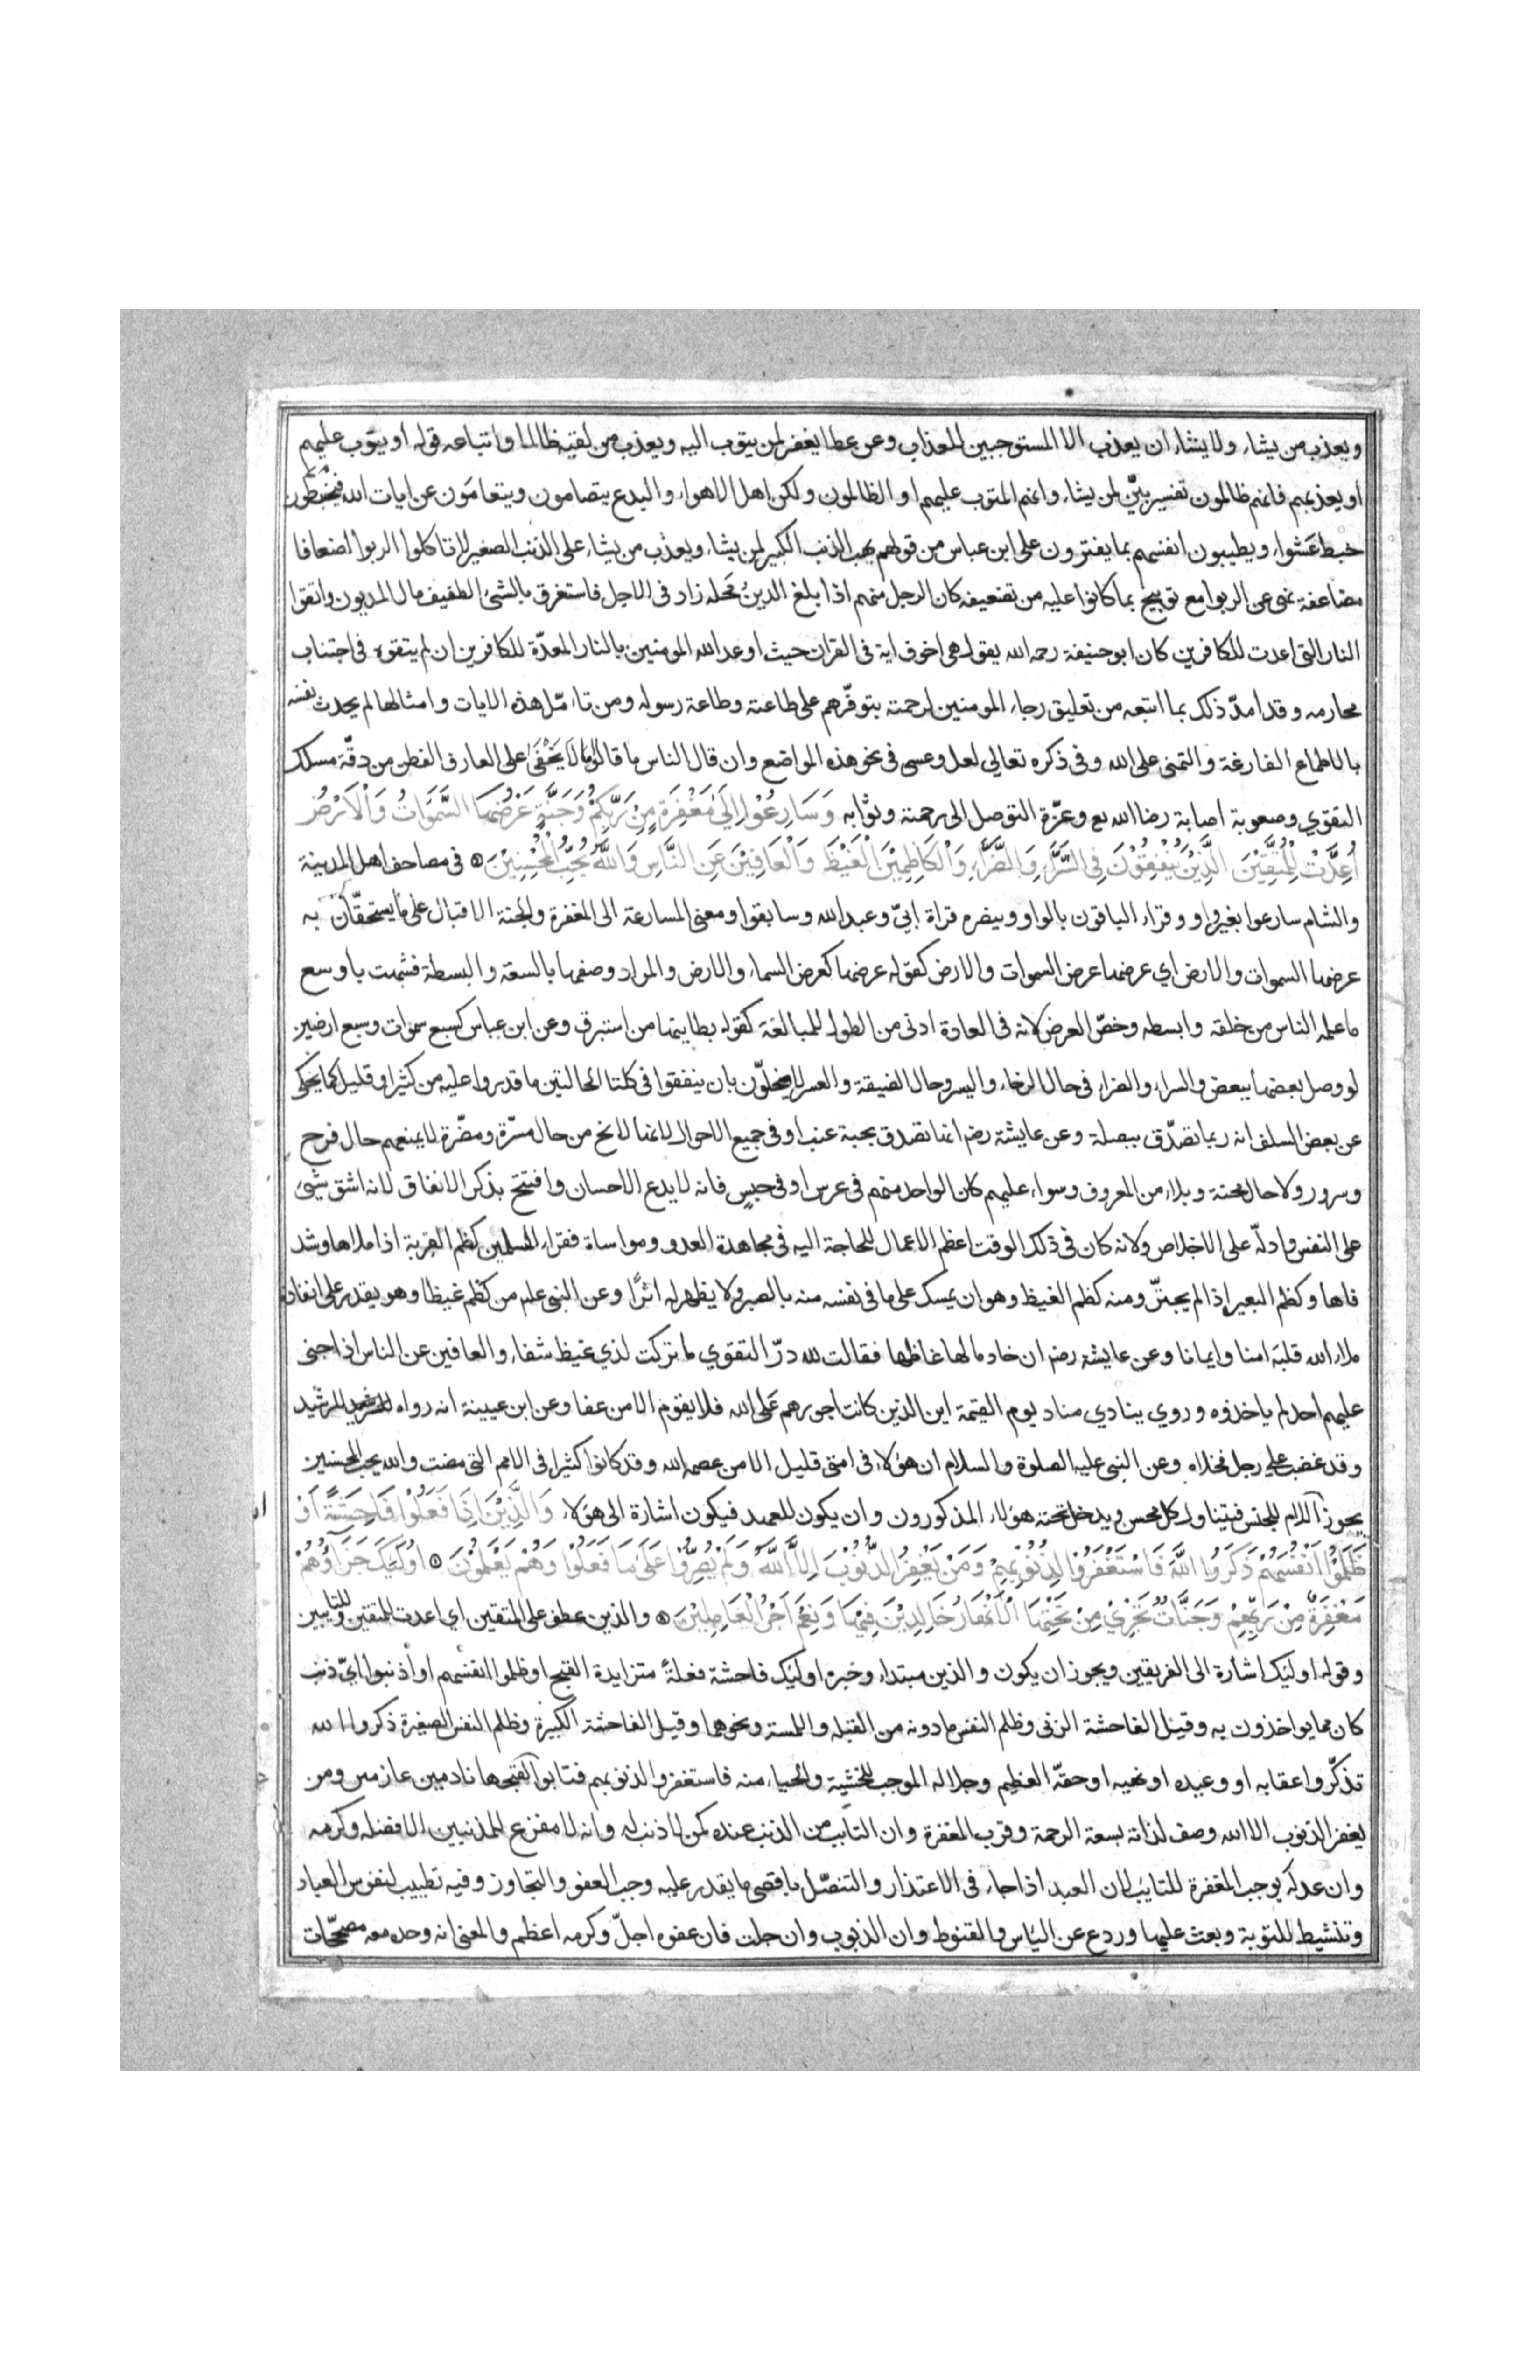 ويعذب من يشاء ولا يشاء ان يعذب الا المستوجبين للعذاب وعن عطا يغفر لمن يتوب اليه ويعذب من لقيه ظالما واتباعه قوله او يتوب عليهم
او يعذبهم فانهم ظالمون تفسير بيّن لمن يشاء وانهم المتوب عليهم او الظالمون ولكن اهل الاهواء والبدع يتصامون ويتعامَون عن ايات الله فيخبطون
خبط عَشواء ويطيبون انفسهم بما يفترون على ابن عباس من قولهم يهب الذنب الكبير لمن يشاء ويعذب من يشاء على الذنب الصغير لا تاكلوا الربوا اضعافا
مضاعفة نهى عن الربوا مع توبيخ بما كانوا عليه من تضعيفه كان الرجل منهم اذا بلغ الدينُ مَحله زاد فى الاجل فاستغرق بالشئ الطفيف مال المديون واتقوا
النار التى اعدت للكافرين كان ابو حنيفة رحمه الله يقول هى اخوف اية فى القران حيث اوعد الله المومنين بالنار المعدّة للكافرين ان لم يتقوه فى اجتناب
محارمه وقد امدّ ذلك بما اتبعه من تعليق رجاء المومنين لرحمته بتوفّرهم على طاعته وطاعة رسوله ومن تامّل هذه الايات وامثالها لم يحدث نفسه
بالاطماع الفارغة والتمنى على الله وفى ذكره تعالي لعل وعسى فى نحو هذه المواضع وان قال الناس ما قالوا ما لا يَخْفَى على العارف الفطن من دقّة مسلك
التقوي وصعوبة اصابة رضا الله وعزّة التوصل الى رحمته وثوابه وَسَارِعُوْا اِلَىٰ مَغْفِرَةٍ مِنْ رَبِّكُمْ وَجَنَّةٍ عَرْضُهَا السَّمَوَاتُ وَالْاَرْضُ
اُعِدَّتْ لِلْمُتَّقِيْنَ الَّذِيْنَ يُنْفِقُوْنَ فِى السَّرَّاءِ وَالضَّرَّاءِ وَالْكَاظِمِيْنَ الْغَيْظَ وَالْعَافِيْنَ عَنِ النَّاسِ وَاللَّهُ يُحِبُّ الْمُحْسِنِيْنَ فى مصاحف اهل المدينة
والشام سارعوا بغير واو وقراء الباقون بالواو وينصره قراة ابىّ وعبد الله وسابقوا ومعنى المسارعة الى المغفرة والجنة الاقبال على ما يستحقّان به
عرضها السموات والارض اي عرضها عرض السموات والارض كقوله عرضها كعرض السماء والارض والمراد وصفها بالسعة والبسطة فشبهت باوسع
ما علمه الناس من خلقه وابسطه وخصّ العرض لانه فى العادة ادنى من الطول للمبالغة كقوله بطاينها من استبرق وعن ابن عباس كسبع سموات وسبع ارضين
لو وصل بعضها ببعض والسراء والضراء فى حال الرخاء واليسر وحال الضيقة والعسر لا يخلون بان ينفقوا فى كلتا الحالتين ما قدروا عليه من كثير او قليل كما يحكى
عن بعض السلف انه ربما تصدّق ببصلة وعن عايشة رضه انها تصدق بحبة عنب او فى جميع الاحوال لانها لا تخ من حال مسرّة ومضّرة لا يمنعهم حال فرح
وسرور ولا حال محنة وبلاء من المعروف وسواء عليهم كان الواحد منهم فى عرس او فى حبسٍ فانه لا يدع الاحسان وافتتح بذكر الانفاق لانه اشق شئ
على النفس وادلّه على الاخلاص ولانه كان فى ذلك الوقت اعظم الاعمال للحاجة اليه فى مجاهدة العدو ومواساة فقراء المسلمين كظم القربة اذا ملاها وشد
فاها وكظم البعير اذا لم يجترّ ومنه كظم الغيظ وهو ان يمسك على ما فى نفسه منه بالصبر ولا يظهر له اثرًا وعن النبى علم من كظم غيظا وهو يقدر على انفاذه
ملاء الله قلبه امنا وايمانا وعن عايشة رضه ان خادما لها غاظها فقالت لله درّ التقوي ما تركت لذي غيظ شفاء والعافين عن الناس اذا جنى
عليهم احد لم ياخذوه وروي ينادي مناد يوم القيمة اين الذين كانت اجورهم عَلى الله فلا يقوم الا من عفا وعن ابن عيينة انه رواه للرشيد
وقد غضب على رجل فخلاه وعن النبى عليه الصلوة والسلام ان هؤلاء فى امتى قليل الا من عصمه الله وقد كانوا كثيرا فى الامم التى مضت والله يحب المحسنين
يجوز اللام للجنس فيتناول كل محسن ويدخل تحته هؤلاء المذكورون وان يكون للعهد فيكون اشارة الى هؤلاء وَالَّذِيْنَ اِذَا فَعَلُوْا فَاحِشَةً اَوْ
ظَلَمُوْا اَنْفُسَهُمْ ذَكَرُوا اللَّهَ فَاسْتَغْفَرُوْا لِذُنُوْبِهِمْ وَمَنْ يَغْفِرُ الذُّنُوْبَ اِلاَّ اللَّهُ وَلَمْ يُصِرُّوْا عَلَىٰ مَا فَعَلُوْا وَهُمْ يَعْلَمُوْنَ اُولَئِكَ جَزَآؤُهُمْ
مَغْفِرَةٌ مِنْ رَبِّهِمْ وَجَنَّاتٌ تَجْرِيْ مِنْ تَحْتِهَا الْاَنْهَارُ خَالِدِيْنَ فِيْهَا وَنِعْمَ اَجْرُ الْعَامِلِيْنَ والذين عطف على المتقين اي اعدت للمتقين وللتايبين
وقوله اوليك اشارة الى الفريقين ويجوز ان يكون والذين مبتداء وخبره اوليك فاحشة فعلةً متزايدة القبح او ظلموا انفسهم او اذنبوا ايّ ذنب
كان مما يواخذون به وقيل الفاحشة الزنى وظلم النفس ما دونه من القبله واللمسة ونحوهما وقيل الفاحشة الكبيرة وظلم النفس الصغيرة ذكروا الله
تذكّروا عقابه او وعيده او نهيه او حقّه العظيم وجلاله الموجب للخشية والحياء منه فاستغفروا لذنوبهم فتابوا لقبحها نادمين عازمين ومن
يغفر الذنوب الا الله وصف لذاته بسعة الرحمة وقرب المغفرة وان التايب من الذنب عنده كمن لا ذنب له وانه لا مفزع للمذنبين الا فضله وكرمه
وان عدله يوجب المغفرة للتايب لان العبد اذا جاء فى الاعتذار والتنصّل باقصى ما يقدر عليه وجب العفو والتجاوز وفيه تطييب لنفوس العباد
وتنشيط للتوبة وبعث عليها وردع عن الياس والقنوط وان الذنوب وان جلت فان عفوه اجلّ وكرمه اعظم والمعنى انه وحده معه مصححّات